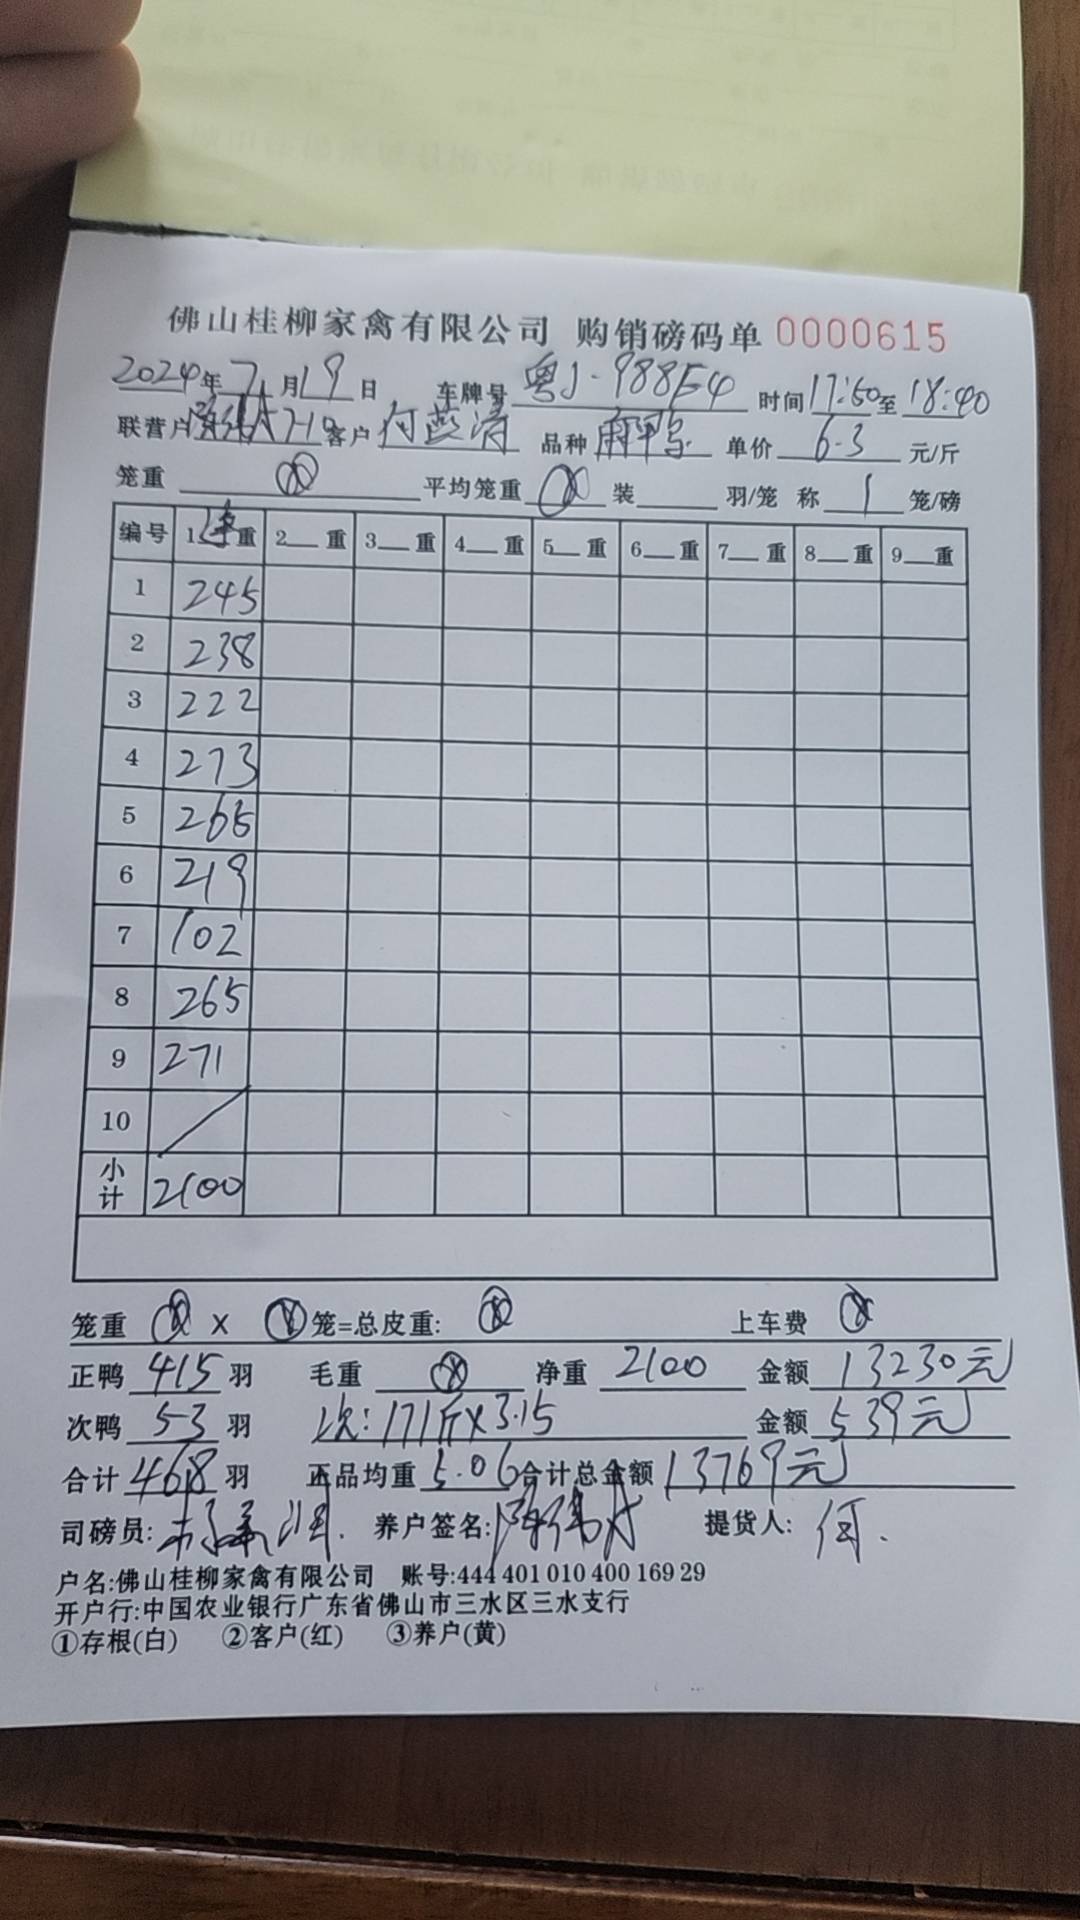 佛山桂柳家禽有限公司 购销磅码单 0000615
2024年7月19日 车牌号 粤J-988F4 时间17:50至18:40
联营户 陈伟才7-10 客户 何燕清 品种 麻鸭 单价 6.3 元/斤
笼重 平均笼重 装 羽/笼 称 1 笼/磅
编号 1净重 2 重 3 重 4 重 5 重 6 重 7 重 8 重 9 重
1 245
2 238
3 222
4 273
5 265
6 219
7 102
8 265
9 271
10
小计 2100
笼重 X 笼=总皮重: 上车费
正鸭 415 羽 毛重 净重 2100 金额 13230元
次鸭 53 羽 次:171斤×3.15 金额 539元
合计 468 羽 正品均重 5.06 合计总金额 13769元
司磅员: 养户签名:陈伟才 提货人:何.
户名:佛山桂柳家禽有限公司 账号:444 401 010 400 169 29
开户行:中国农业银行广东省佛山市三水区三水支行
①存根(白) ②客户(红) ③养户(黄)